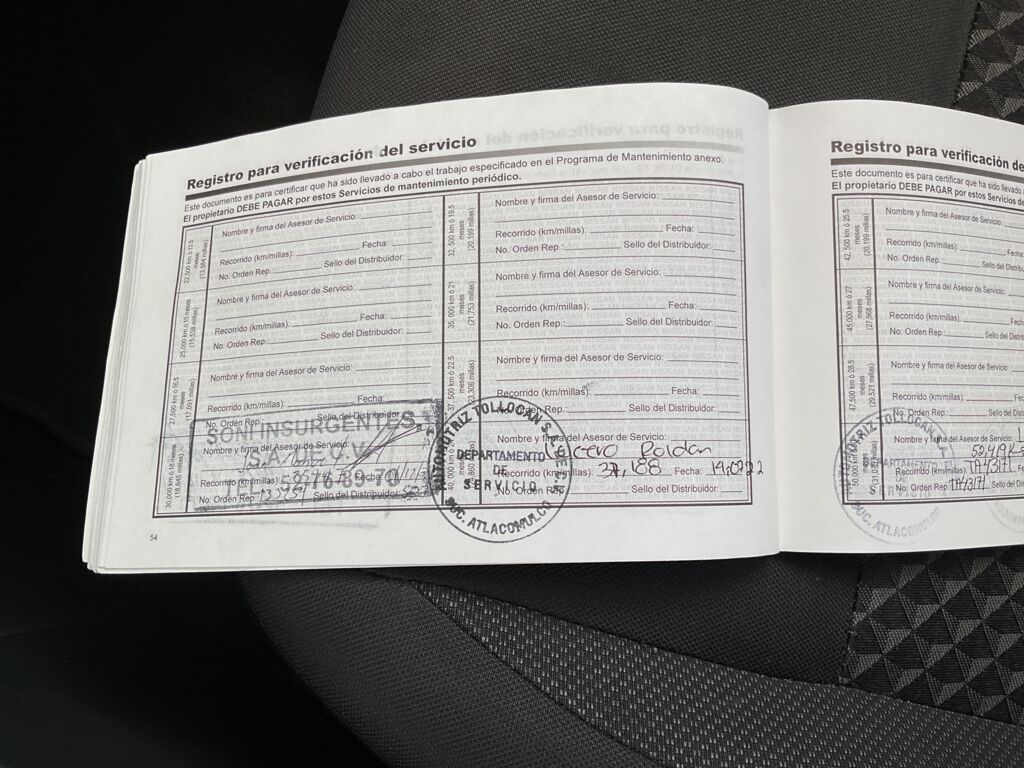 Registro para verificación del servicio
Este documento es para certificar que ha sido llevado a cabo el trabajo especificado en el Programa de Mantenimiento anexo.
El propietario DEBE PAGAR por estos Servicios de mantenimiento periódico.
22,500 km ó 13.5 meses (13,984 millas)
Nombre y firma del Asesor de Servicio:
Recorrido (km/millas): Fecha:
No. Orden Rep.: Sello del Distribuidor:
25,000 km ó 15 meses (15,538 millas)
Nombre y firma del Asesor de Servicio:
Recorrido (km/millas): Fecha:
No. Orden Rep.: Sello del Distribuidor:
27,500 km ó 16.5 meses (17,091 millas)
Nombre y firma del Asesor de Servicio:
Recorrido (km/millas): Fecha:
No. Orden Rep. Sello del Distribuidor
30,000 km ó 18 meses (18,645 millas)
Nombre y firma del Asesor de Servicio:
Recorrido (km/millas): Fecha
No. Orden Rep Sello del Distribuidor:
SONI INSURGENTES
S.A. DE C.V.
54
32,500 km ó 19.5 meses (20,199 millas)
Nombre y firma del Asesor de Servicio:
Recorrido (km/millas): Fecha:
No. Orden Rep.: Sello del Distribuidor:
35,000 km ó 21 meses (21,753 millas)
Nombre y firma del Asesor de Servicio:
Recorrido (km/millas): Fecha:
No. Orden Rep.: Sello del Distribuidor:
37,500 km ó 22.5 meses (23,306 millas)
Nombre y firma del Asesor de Servicio:
Recorrido (km/millas) Fecha:
Rep.: Sello del Distribuidor:
40,000 km
Nombre y firma del Asesor de Servicio:
Roldan
Recorrido (km/millas): 37,188 Fecha: 14,02,22
No. Orden Rep.: Sello del Distribuidor:
AUTOMOTRIZ TOLLOCAN S.A. DE C.V.
DEPARTAMENTO
DE
SERVICIO
SUC. ATLACOMULCO
Registro para verificación de
Este documento es para certificar que ha sido llevado
El propietario DEBE PAGAR por estos Servicios de
42,500 km ó 25.5 meses (20,199 millas)
Nombre y firma del Asesor de Servicio:
Recorrido (km/millas): Fecha
No. Orden Rep.: Sello del Distribu
45,000 km ó 27 meses (27,968 millas)
Nombre y firma del Asesor de Servicio:
Recorrido (km/millas): Fecha
No. Orden Rep.: Sello del Distrib
47,500 km ó 28.5 meses (29,521 millas)
Nombre y firma del Asesor de Servicio:
Recorrido (km/millas): Fecha
No. Orden Rep.: Sello del Distrib
50,000 km
Nombre y firma del Asesor de Servicio:
Recorrido (km/millas): TA43171 Fecha
No. Orden Rep TA43171 Sello del Distrib
TOLLOCAN
DEPARTAMENTO
SUC. ATLACOMULCO